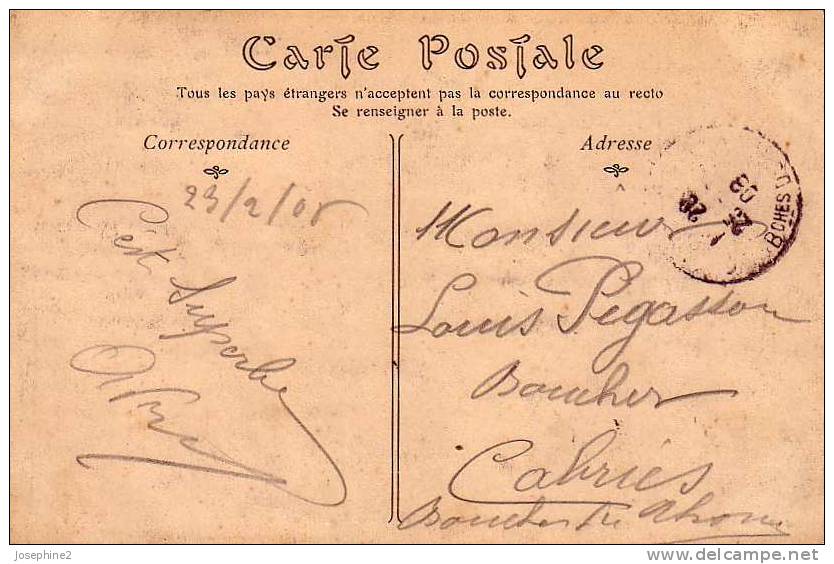 Carte Postale
Tous les pays étrangers n'acceptent pas la correspondance au recto
Se renseigner à la poste.
Correspondance
Adresse
23/2/08
C'est Superbe
Monsieur
Louis Pégasson
Boucher
Cabriès
Bouches du Rhône
BCHES D
28
2
08
Josephine2
delcampe.net